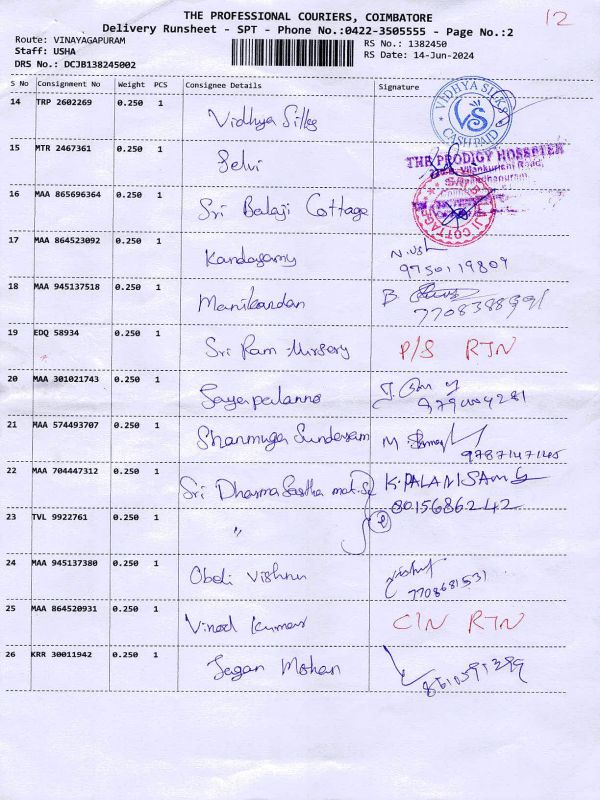 THE PROFESSIONAL COURIERS, COIMBATORE
12
Delivery Runsheet - SPT - Phone No.:0422-3505555 - Page No.:2
Route: VINAYAGAPURAM
RS No.: 1382450
Staff: USHA
RS Date: 14-Jun-2024
DRS No.: DCJB138245002
S No Consignment No Weight PCS Consignee Details Signature
14 TRP 2602269 0.250 1 Vidhya Silks
VIDHYA SILKS VS CASH PAID
15 MTR 2467361 0.250 1 Selvi
THE PRODIGY HOSSTEL
Vilankurichi Road,
16 MAA 865696364 0.250 1 Sri Balaji Cottage
17 MAA 864523092 0.250 1 Kandasamy N.Ush
9750119809
18 MAA 945137518 0.250 1 Manikandan B
7708388991
19 EDQ 58934 0.250 1 Sri Ram Nursery P/S RTN
20 MAA 301021743 0.250 1 Jayapalanna
21 MAA 574493707 0.250 1 Shanmuga Sundaram M
9787147145
22 MAA 704447312 0.250 1 Sri Dharma Sastha mat.Se K.PALANISAMY
8015686242
23 TVL 9922761 0.250 1 "
24 MAA 945137380 0.250 1 Obeli Vishnu
7708681531
25 MAA 864520931 0.250 1 Vinod Kumar C/N RTN
26 KRR 30011942 0.250 1 Jegan Mohan
8610591399